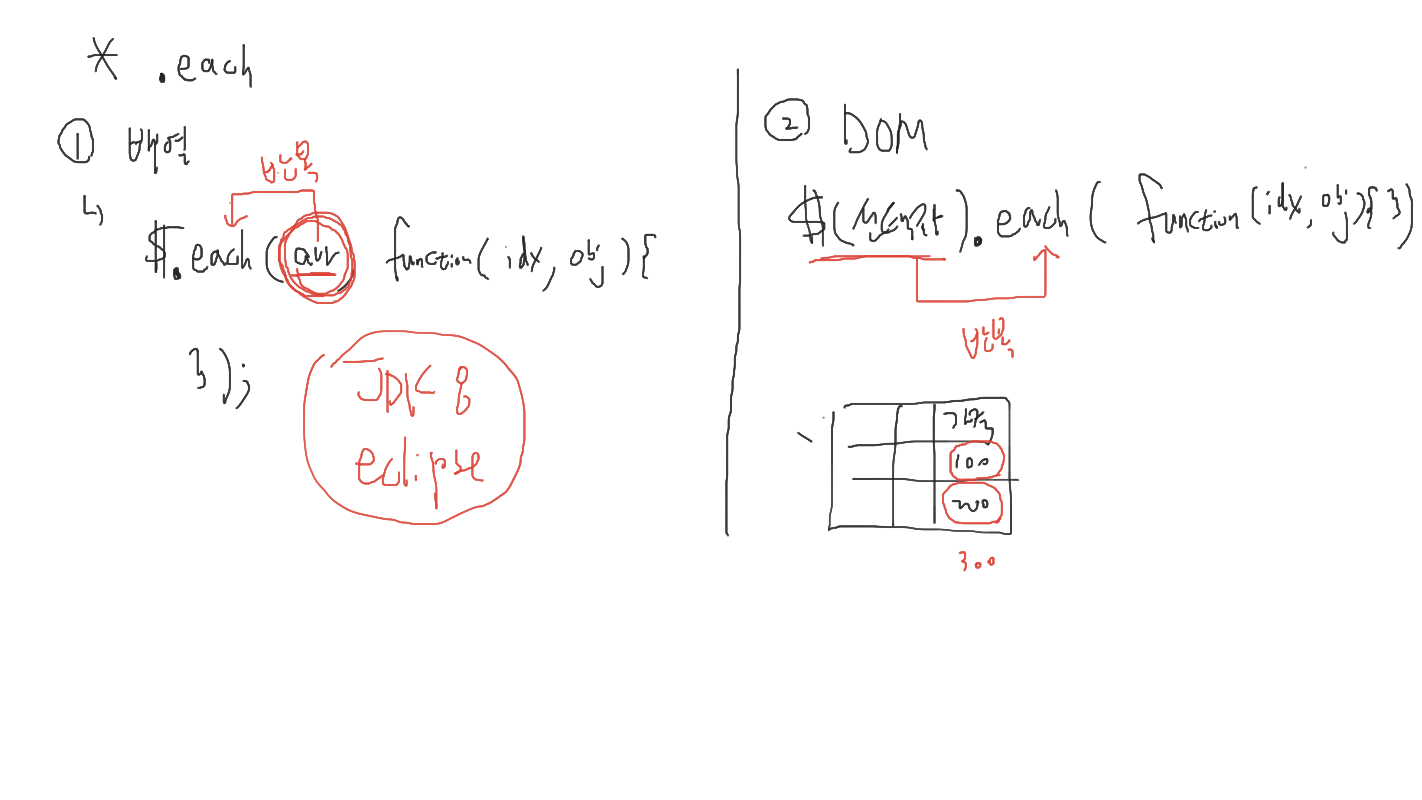 * .each
① 배열
반복
↳ $.each(arr, function(idx, obj){
});
JDK 8
eclipse
② DOM
$(선택자).each( function(idx, obj){ })
반복
가격
100
200
300